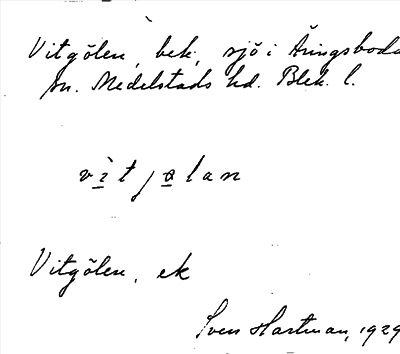 Vitgölen, bek, sjö i Åringsboda
sn. Medelstads hd. Blek. l.
vìtjølan
Vitgölen, ek
Sven Hartman, 1929